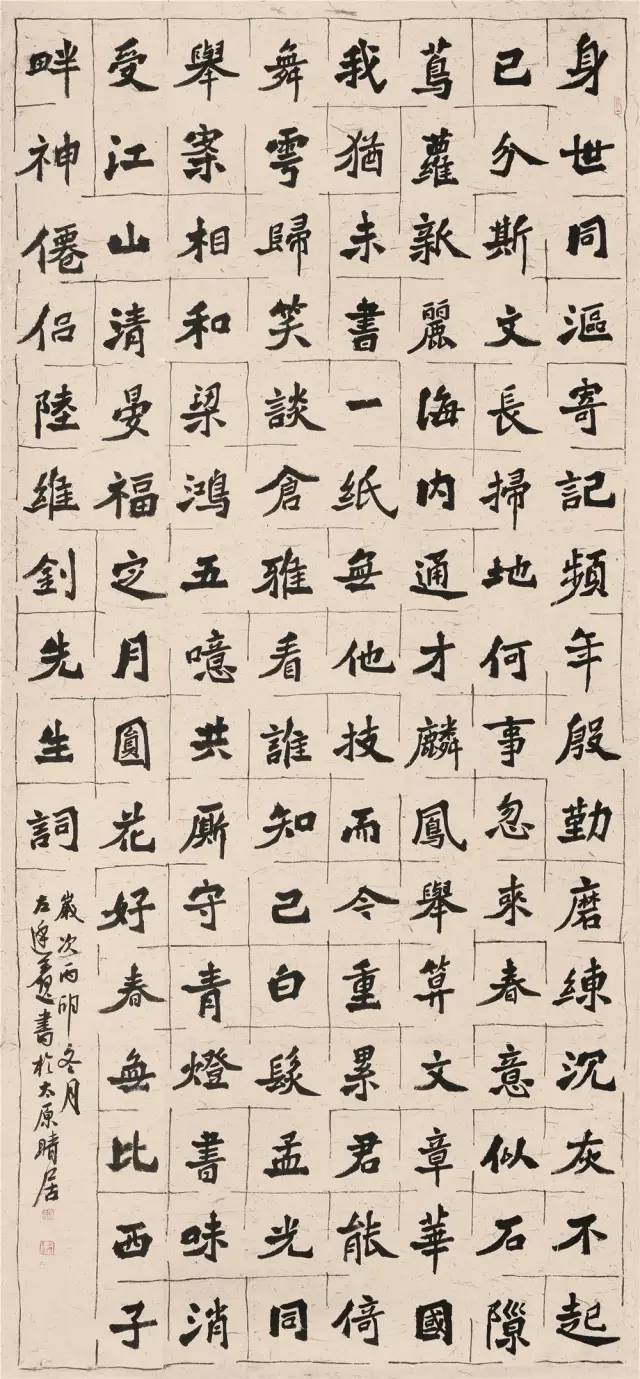 身世同漚寄記頻年殷勤磨練沉灰不起
已分斯文長掃地何事忽來春意似石隙
蔦蘿新麗海内通才麟鳳舉算文章華國
我猶未書一紙無他技而今重累君能倚
舞雩歸笑談倉雅看誰知己白髮孟光同
舉案相和梁鴻五噫共廝守青燈書味消
受江山清晏福定月圓花好春無比西子
畔神僊侶陸維釗先生詞
歲次丙冬月
左書於太原晴居